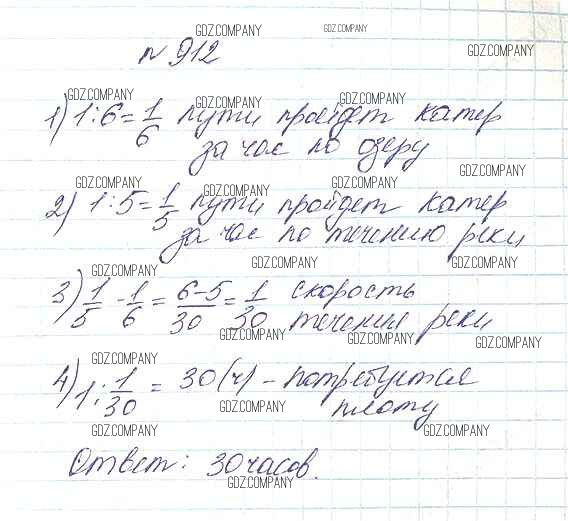 GDZ.COMPANY GDZ.COMPANY
№ 912 GDZ.COMPANY
GDZ.COMPANY GDZ.COMPANY GDZ.COMPANY
1) 1:6=1/6 пути пройдет катер
за час по озеру
GDZ.COMPANY
GDZ.COMPANY GDZ.COMPANY GDZ.COMPANY
2) 1:5=1/5 пути пройдет катер
за час по течению реки
GDZ.COMPANY GDZ.COMPANY GDZ.COMPANY
3) 1/5 - 1/6 = 6-5/30 = 1/30 скорость
течения реки
GDZ.COMPANY GDZ.COMPANY GDZ.COMPANY GDZ.COMPANY
GDZ.COMPANY
4) 1:1/30 = 30 (ч) - потребуется
плоту
GDZ.COMPANY
GDZ.COMPANY GDZ.COMPANY
Ответ: 30 часов.
GDZ.COMPANY